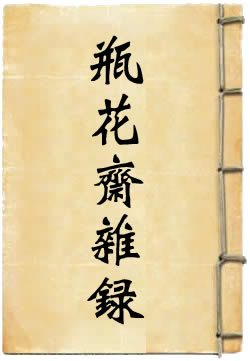 瓶花齋雜録